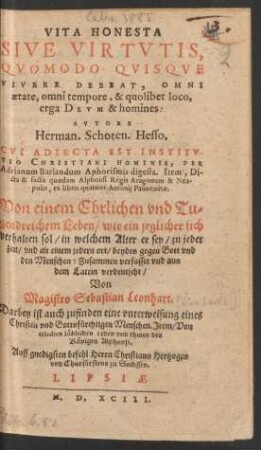 VITA HONESTA
SIVE VIRTVTIS,
QVOMODO QVISQVE
VIVERE DEBEAT, OMNI
ætate, omni tempore, & quolibet loco,
erga DEVM & homines:
AVTORE
Herman. Schoten. Hesso,
CVI ADIECTA EST INSTITV-
TIO CHRISTIANI HOMINIS, PER
Adrianum Barlandum Aphorismis digesta. Item, Di-
cta & facta quædam Alphonsi Regis Aragonum & Nea-
polis, ex libris quatuor Antonij Panormitæ.
Von einem Ehrlichen vnd Tu-
gendreichem Leben / wie ein jeglicher sich
verhalten sol / in welchem Alter er sey / zu jeder
zeit / vnd an einem jedern ort / beydes gegen Gott vnd
den Menschen: Zusammen verfasset vnd aus
dem Latein verdeutscht /
Von
Magistro Sebastian Leonhart.
Darbey ist auch zufinden eine vnterweisung eines
Christen vnd Gottsfürchtigen Menschen. Item / Von
etlichen löblichen reden vnd thaten des
Königes Alphonsi.
Auff gnedigsten befehl Herrn Christians Hertzoges
von Churfürstens zu Sachssen.
LIPSIÆ
M. D. XCIII.